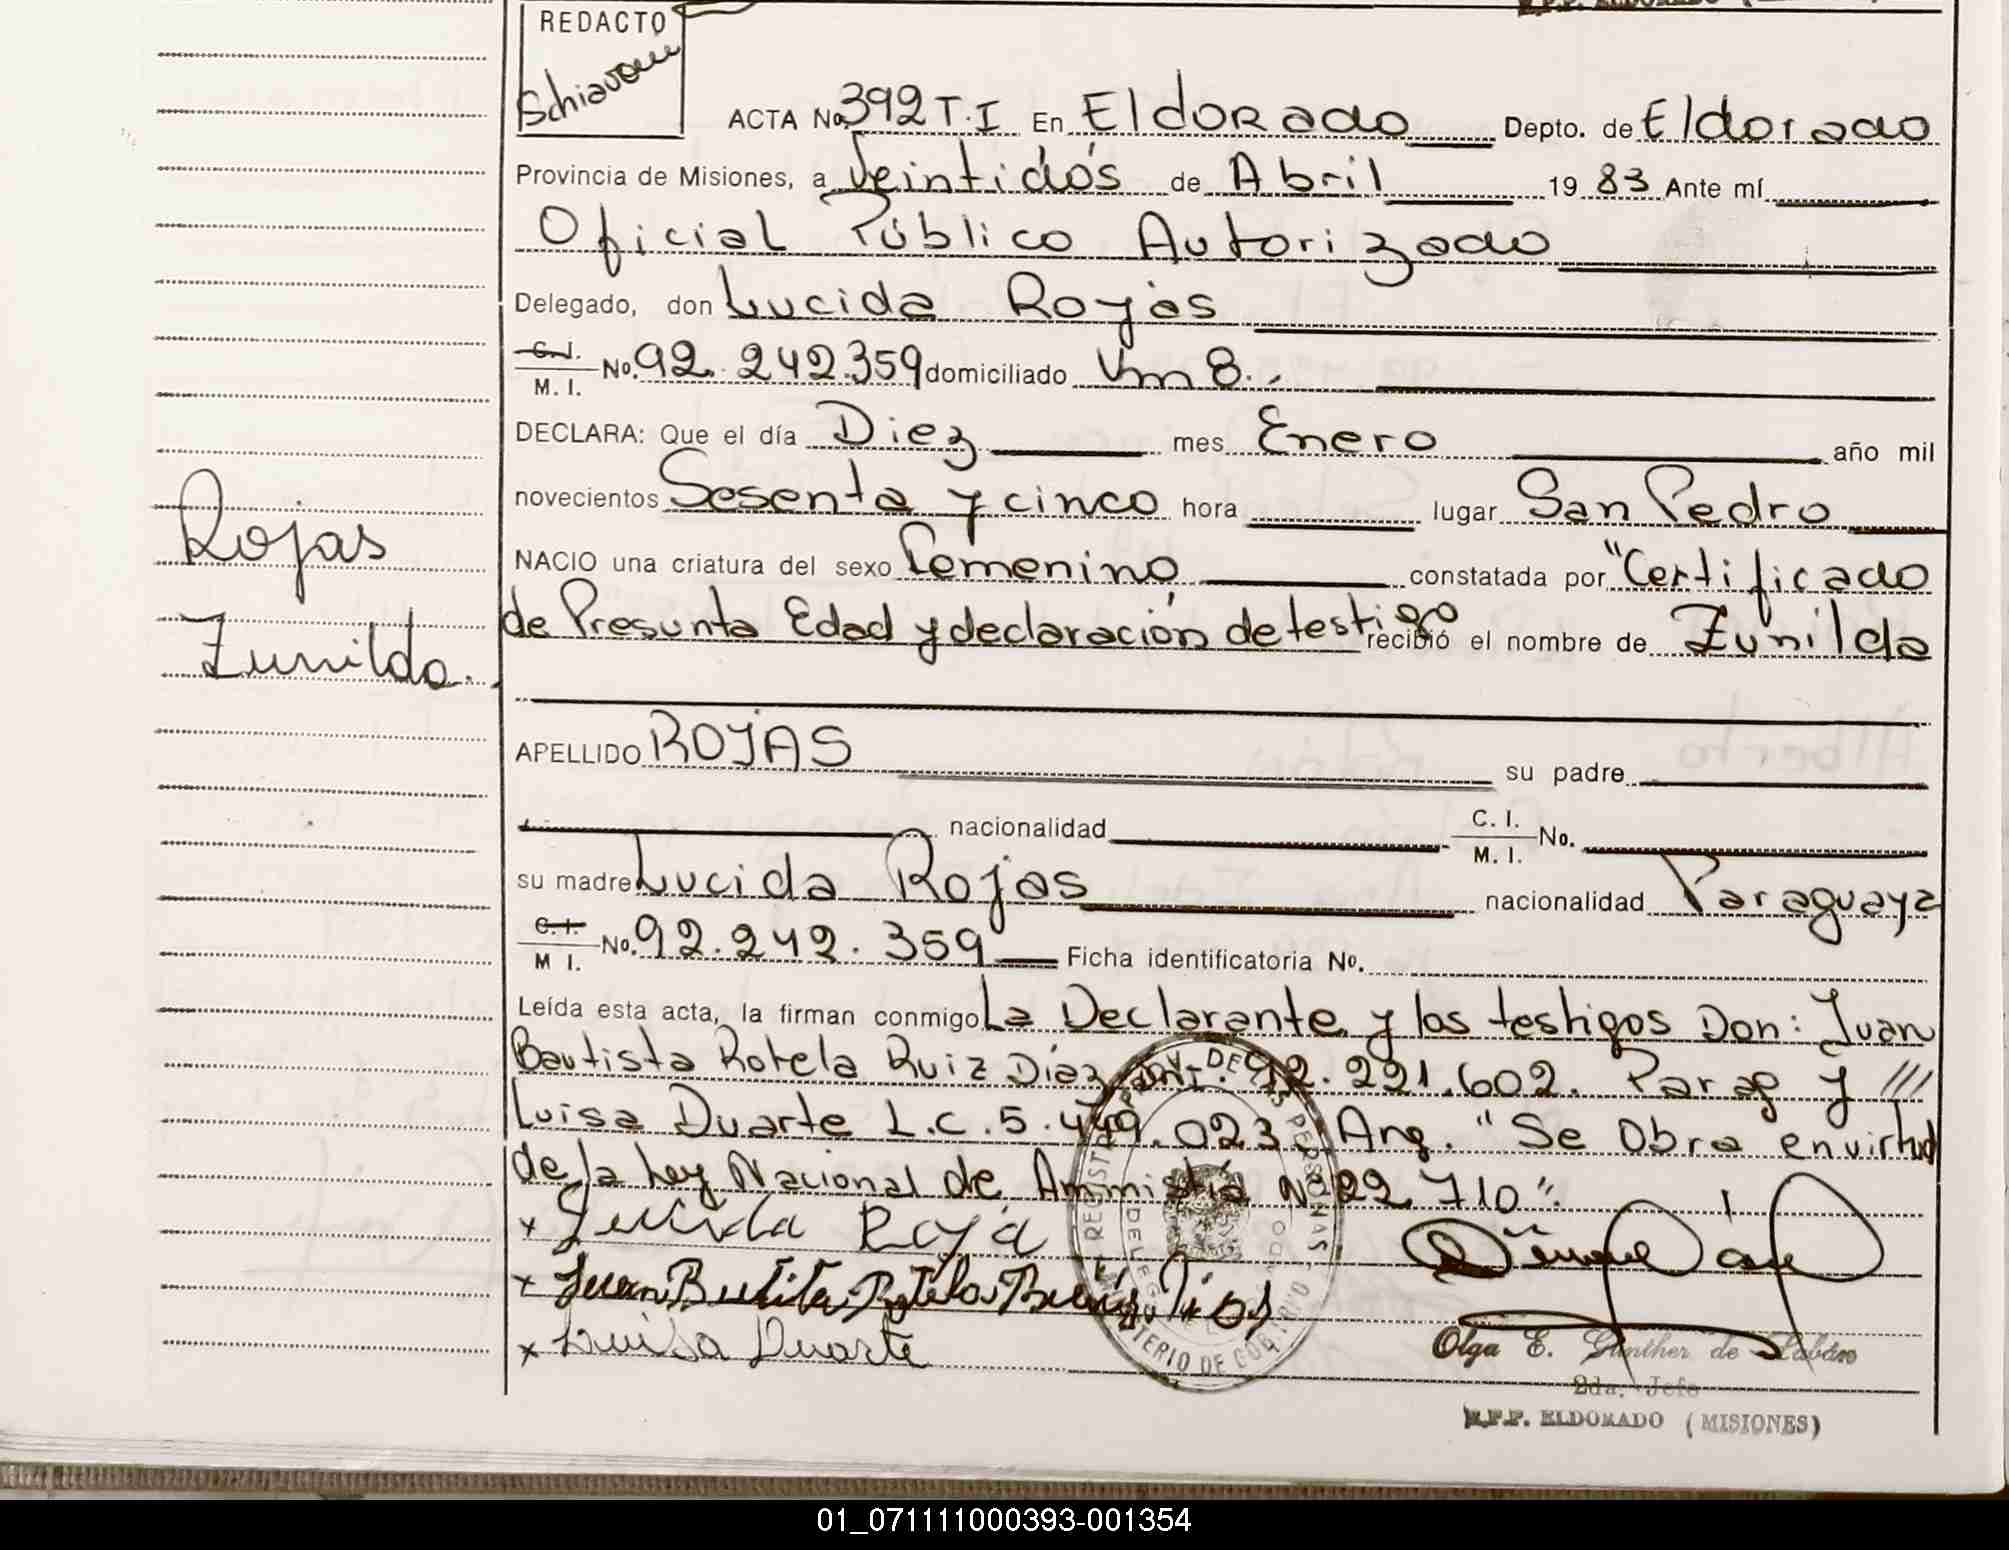 REDACTO
Schiavoni
ACTA No. 392 T.I En Eldorado Depto. de Eldorado
Provincia de Misiones, a Veintidós de Abril 19 83 Ante mí
Oficial Público Autorizado
Delegado, don Lucida Rojas
C.I. M. I. No. 92.242.359 domiciliado Km 8.
DECLARA: Que el día Diez mes Enero año mil
novecientos Sesenta y cinco hora lugar San Pedro
NACIO una criatura del sexo Femenino constatada por "Certificado
de Presunta Edad y declaración de testigo recibió el nombre de Zunilda
Rojas
Zunilda.
APELLIDO ROJAS su padre
nacionalidad C. I. M. I. No.
su madre Lucida Rojas nacionalidad Paraguaya
C.I. M I. No. 92.242.359 Ficha identificatoria No.
Leída esta acta, la firman conmigo La Declarante y los testigos Don: Juan
Bautista Rotela Ruiz Díaz M.I. 92.221.602. Parag y ///
Luisa Duarte L.C. 5.479.023 Arg. "Se Obra en virtud
de la Ley Nacional de Ammistía Nº 22.710".
x Lucida Roja
x Juan Bautista Rotela Ruiz Dias
x Luisa Duarte
Olga E. Günther de Labán
2da. Jefe
R.P.P. ELDORADO (MISIONES)
01_071111000393-001354